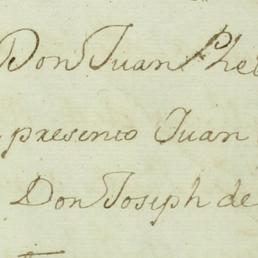 Don Juan Phe
presento Juan
Don Joseph de